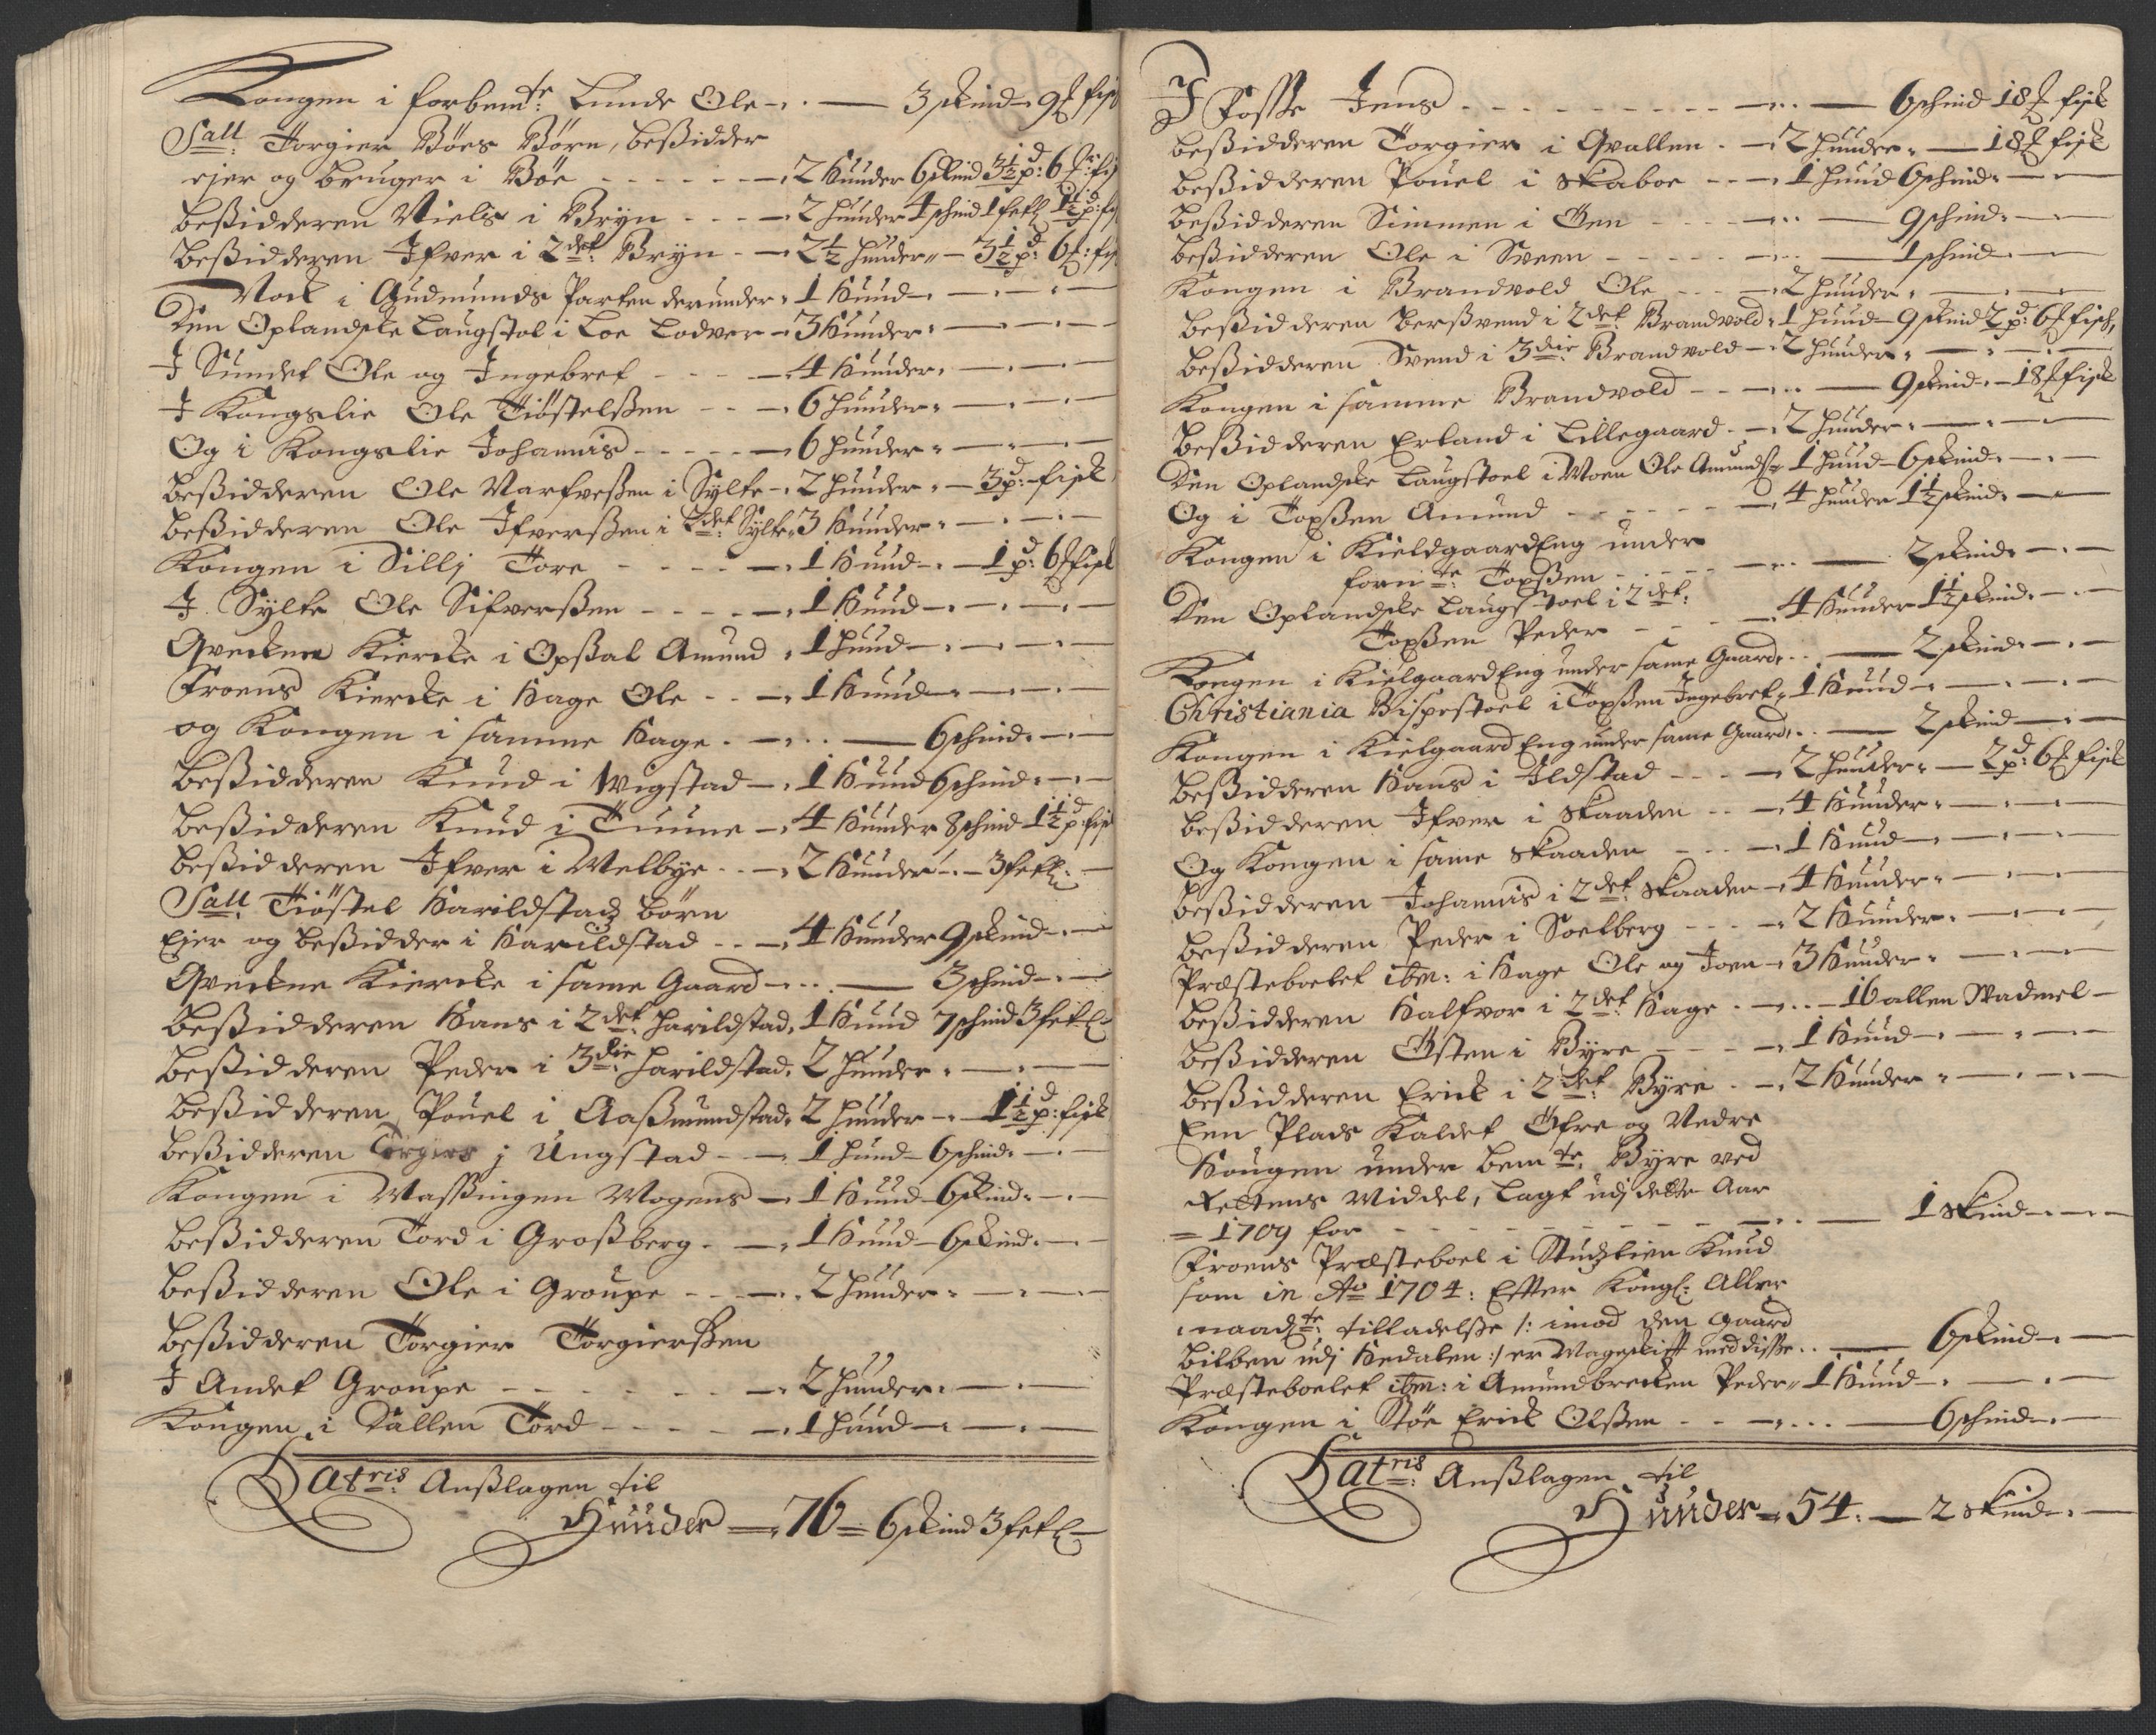 Kongen i forbemte: Lunde Ole - - - 3 skind - 9 ₤ fisk
Sall. Torgier Böes Börn, beßidder
ejer og bruger i Böe - - - 2 Hunder 6 skind 3½ pd: 6 ₤ fisk
beßidderen Niels i Bryn - - - 2 hunder 4 schind 1 fetl 1½ pd: fisk
beßidderen Ifver i 2det Bryn - - 2½ hunder - 3½ pd: 6 ₤: fisk
Nock i Gudmunds Parten derunder, 1 Hund - - -
Den Oplandske Laugstol i Loe Lodver - 3 Hunder - - -
I Sundet Ole og Ingebret - - - 4 Hunder - - -
I Kongslie Ole Tiöstelßen - - - 6 hunder - - -
Og i Kongslie Johannis - - - 6 hunder - - -
beßidderen Ole Narfveßen i Sylte - 2 hunder - 3 pd: - fisk
beßidderen Ole Ifverßen i 2det Sylte, 3 Hunder - - -
Kongen i Sillj Tore - - - 1 Hund - 1 pd: 6 ₤ fisk
I Sylte Ole Sifverßen - - - 1 Hund - - -
Qvickne Kiercke i Opßal Amund, 1 hund - - -
Froens Kiercke i Hage Ole - - - 1 Hund - - -
og Kongen i samme Hage - - - 6 schind - -
beßidderen Knud i Wigstad - 1 Hund 6 schind - -
beßidderen Knud i Tuune - 4 Hunder 8 schind 1½ pd: fisk
beßidderen Ifver i Melbye - - 2 Hunder - 3 fetl: -
Sall. Tiöstel Harildstads börn
Ejer og beßidder i Harildstad - - 4 Hunder 9 skind - -
Qvickne Kiercke i same Gaard - - - 3 schind - -
beßidderen Hans i 2det harildstad, 1 Hund 7 schind 3 fetl
beßidderen Peder i 3die harildstad, 2 hunder - - -
beßidderen Pouel i Aaßmundstad, 2 hunder - 1½ pd: fisk
beßidderen Torgier j Ungstad - - 1 hund - 6 schind - -
Kongen i Maßingen Mogens - 1 Hund - 6 skind - -
beßidderen Tord i Großberg - - 1 Hund - 6 skind - -
beßidderen Ole i Groupe - - - 2 hunder - - -
beßidderen Torgier Torgierßen
I Andet Groupe - - - 2 hunder - - -
Kongen i Dallen Tord - - - 1 hund - - -
Latris: Anßlagen til
Hunder - 76 - 6 skind 3 fetl -
I Foße Jens - - - 6 schind 18 ₤ fisk
beßidderen Torgier i Qvallen - - 2 hunder - 18 ₤ fisk
beßidderen Pouel i Skaboe - - 1 hund 6 schind - -
beßidderen Simmen i Öen - - - 9 schind - -
beßidderen Ole i Sveen - - - 1 schind - -
Kongen i Brandvold Ole - - - 2 hunder - - -
beßidderen Berßvend i 2det Brandvold, 1 hund - 9 skind 2 pd: 6 ₤ fisk,
beßidderen Svend i 3die Brandvold - 2 hunder - - -
Kongen i samme Brandvold - - - 9 skind - 18 ₤ fisk
beßidderen Erland i Lillegaard - - 2 hunder - - -
Den Oplandske Laugstoel i Moen Ole Amunds: 1 hund - 6 skind - -
Og i Topßen Amund - - - 4 hunder 1½ skind - -
Kongen i Kieldgaard Eng under
fornte: Topßen - - - 2 skind - -
Den Oplandske Laugstoel i 2det:
Topßen Peder - - - 4 Hunder 1½ skind - -
Kongen i Kielgaard Eng under same Gaard - - 2 skind - -
Christiania Bispestoel i Topßen Ingebret, 1 Hund - - -
Kongen i Kielgaard Eng under same Gaard - - 2 skind - -
beßidderen Hans i Ildstad - - - 2 hunder - 2 pd: 6 ₤ fisk
beßidderen Ifver i Skaaden - - 4 Hunder - - -
Og Kongen i same Skaaden - - - 1 Hund - - -
beßidderen Johannis i 2det Skaaden - 4 Hunder - - -
beßidderen Peder i Soelberg - - - 2 Hunder - - -
Præsteboelet ibm: i Hage Ole og Joen - 3 Hunder - - -
beßidderen Halfvor i 2det Hage - - - 16 allen Wadmel -
beßidderen Östen i Byre - - - 1 Hund - - -
beßidderen Erick i 2det Byre - - 2 Hunder - - -
Een Plads Kaldet Öfre og Nedre
Hougen under bemte: Byre ved
Rettens Middel, lagt udj dette Aar
= 1709 for - - - 1 Skind - - -
Froens Præsteboel i Studslien Knud
som in Ao 1704: Efter Kongl: Aller
naadte: tilladelße /: imod den gaard
bilben udj Hedalen :/ er Mageskift med diße - - 6 skind - -
Præsteboelet ibm: i Amundbrecken Peder - 1 Hund - - -
Kongen i Böe Erick Olßen - - - 6 schind - -
Latris: Anßlagen til
Hunder - 54: - 2 Skind - -